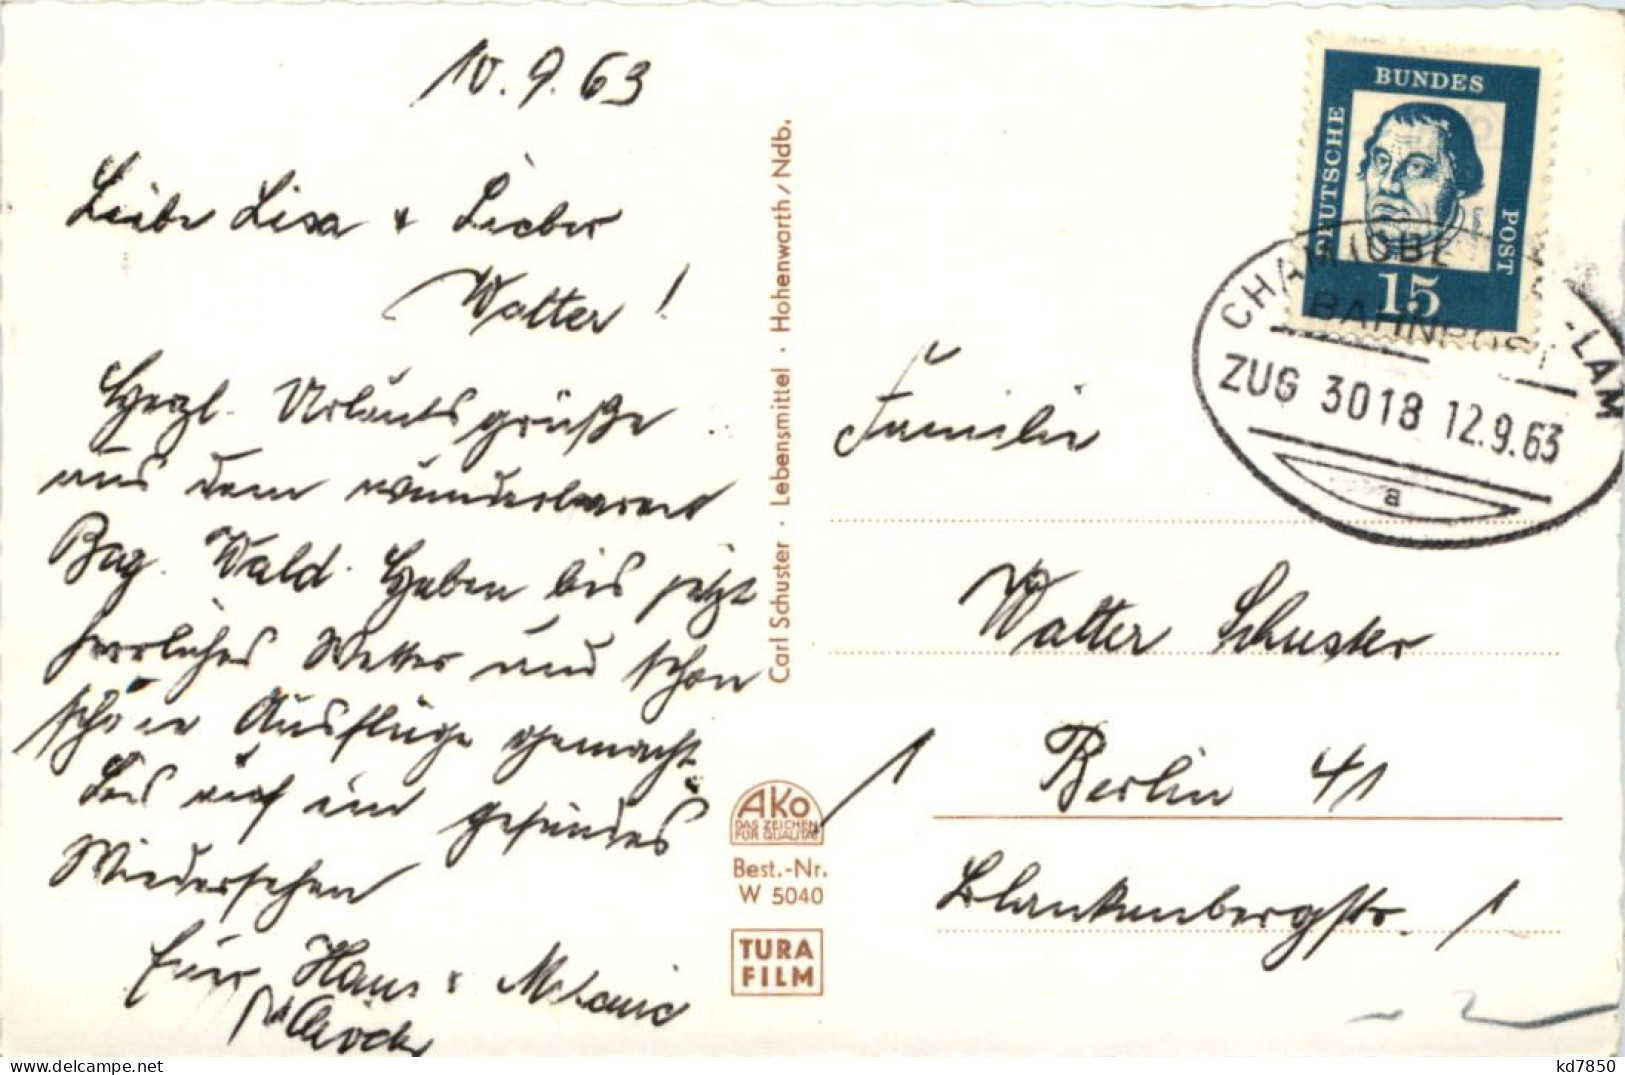 10.9.63
Liebe Lisa & Lieber
Walter!
Herzl. Urlaubsgrüße
aus dem wunderbaren
Bay. Wald. Haben bis jetzt
herrliches Wetter und schon
schöne Ausflüge gemacht.
Bis auf ein gesundes
Wiedersehen
Eure Hans & Melanie
Carl Schuster · Lebensmittel · Hohenwarth/Ndb.
AKo
DAS ZEICHEN
FÜR QUALITÄT
Best.-Nr.
W 5040
TURA
FILM
DEUTSCHE
BUNDES
POST
15
CHAM (OBERPF)-LAM
BAHNPOST
ZUG 3018 12.9.63
a
Familie
Walter Schuster
1 Berlin 41
Blankenbergstr. 1
kd7850